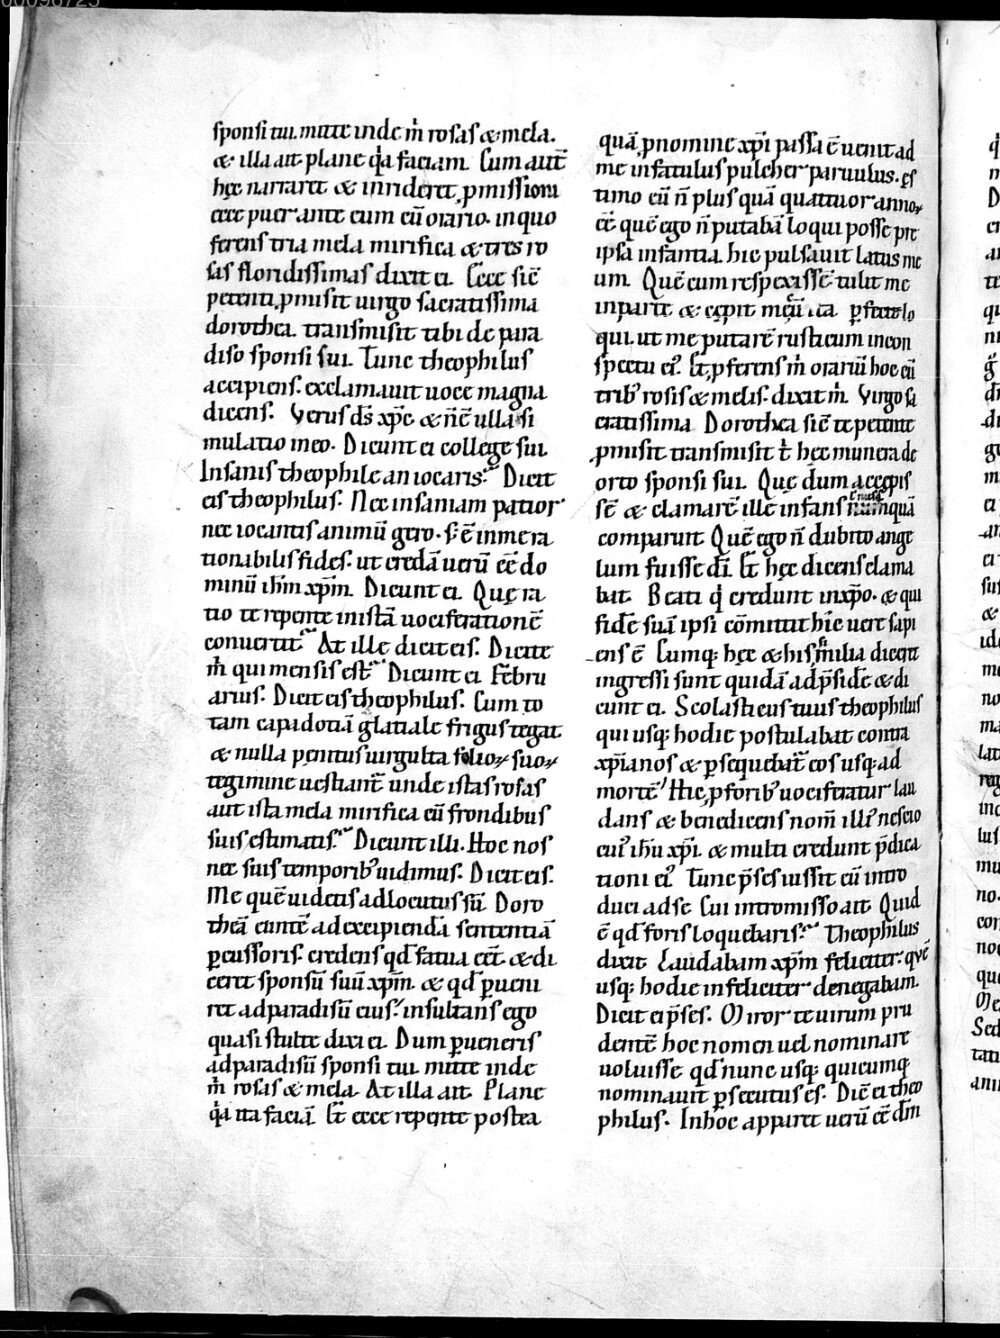 sponsi tui. mitte inde m̄ rosas & mela.
& illa ait plane q̄a faciam. Cum aut̄
hęc narraret & irrideret, ꝓmissioni
ecce puer ante eum cū orario. in quo
ferens tria mela mirifica & tres ro
sas floridissimas dixit ei. Ecce sic̄
petenti, ꝓmisit uirgo sacratissima
dorothea. transmisit tibi de para
diso sponsi sui. Tunc theophilus
accipiens. exclamauit uoce magna
dicens. Verus ds̄ xp̄c & n̄ ē ulla si
mulatio in eo. Dicunt ei college sui.
Insanis theophile an iocaris. Dicit
eis theophilus. Nec insaniam patior
nec iocantis animū gero. s; ē in me ra
tionabilis fides. ut credā uerū ee͞ do
minū ih̄m xp̄m. Dicunt ei. Quę ra
tio te repente in istā uociferationē
conuertit. At ille dicit eis. Dicite
m̄ qui mensis est. Dicunt ei Febru
arius. Dicit eis theophilus. Cum to
tam capadotiā glatiale frigus tegat
& nulla penitus uirgulta folioꝝ suoꝝ
tegimine uestiant̄ unde istas rosas
aut ista mela mirifica cū frondibus
suis estimatis. Dicunt illi. Hoc nos
nec suis temporib; uidimus. Dicit eis.
Me quē uidetis adlocutus sū Doro
theā euntē ad excipiendā sententiā
ꝑcussoris. credens qd̄ fatua eēt & di
ceret sponsū suū xp̄m. & qd̄ ꝑueni
ret ad paradisū eius. insultans ego
quasi stulte dixi ei. Dum ꝑueneris
ad paradisū sponsi tui mitte inde
m̄ rosas & mela. At illa ait. Plane
q̄a ita faciā. Et ecce repente postea
quā, ꝓ nomine xp̄i passa ē uenit ad
me infatulus pulcher paruulus. ęs
timo eū n̄ plus quā quattuor annoꝝ
eē quē ego n̄ putabā loqui posse pre
ipsa infantia. hic pulsauit latus me
um. Quē cum respexissē tulit me
in partē & cępit mecū ita ꝑfecte lo
qui. ut me putarē rusticum in con
spectu ei⁹. Et, ꝓferens m̄ orariū hoc cū
trib; rosis & melis. dixit m̄. Virgo sa
cratissima Dorothea sic̄ te petente
ꝓmisit transmisit t̄ hęc munera de
orto sponsi sui. Quę dum accępis
sē & clamarē ille infans nusquā
comparuit Quē ego n̄ dubito ange
lum fuisse dī. Et hęc dicens clama
bat. Beati q̄ credunt in xp̄o. & qui
fidē suā ipsi cōmittit hic uere sapi
ens ē. Cumq; hęc & his similia diceret
ingressi sunt quidā ad p̄sidē & di
cunt ei. Scolasticus tuus theophilus
qui usq; hodie postulabat contra
xp̄ianos & ꝑsequebat̄ eos usq; ad
mortē Hic, ꝓ forib; uociferatur lau
dans & benedicens nom̄ illi⁹ nescio
cui⁹ ih̄u xp̄i. & multi credunt p̄dica
tioni ei⁹. Tunc p̄ses iussit eū intro
duci ad se. Cui intromisso ait. Quid
ē qd̄ foris loquebaris. Theophilus
dixit. Laudabam xp̄m feliciter. quē
usq; hodie infeliciter denegabam.
Dicit ei p̄ses. Miror te uirum pru
dentē hoc nomen uel nominare
uoluisse qd̄ nunc usq; quicumq;
nominauit ꝑsecutus es. Dic̄ ei theo
philus. In hoc apparet uerū eē dm̄